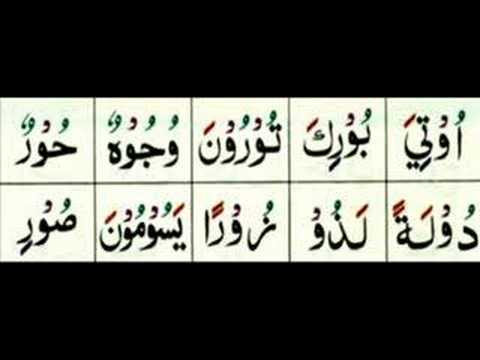 اُوْتِيَ بُوْرِكَ تُوْرُوْنَ وُجُوْهٌ حُوْرٌ
دُوْلَةً لَذُوْ زُوْرًا يَسُوْمُوْنَ صُوْرِ